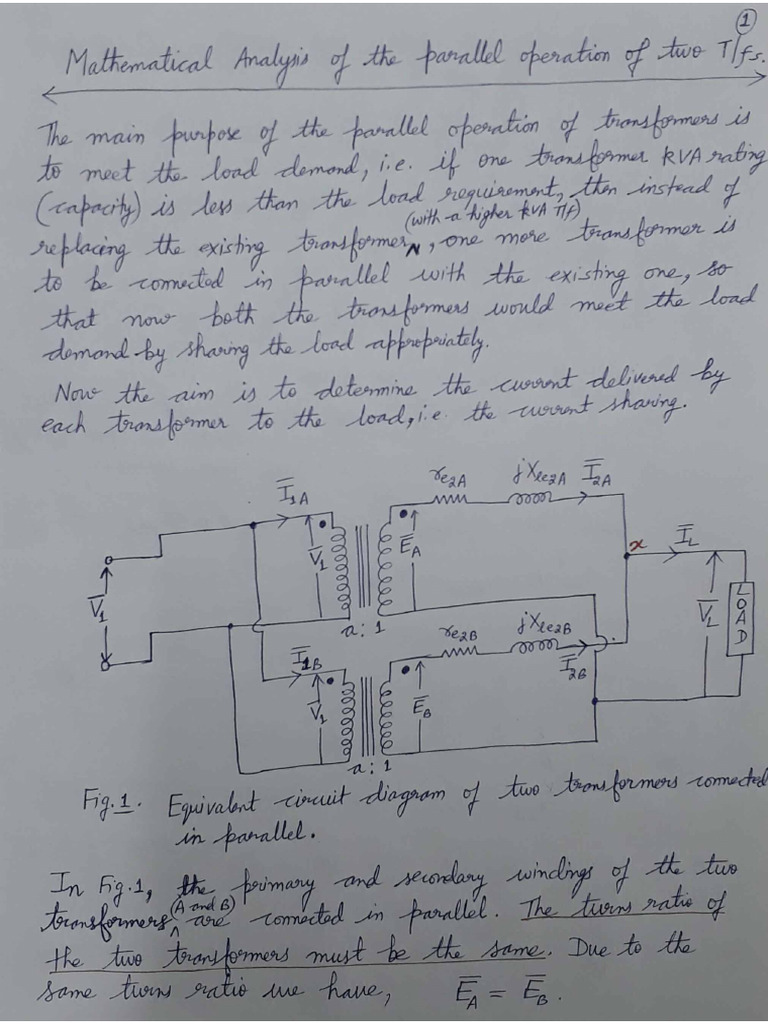 1
Mathematical Analysis of the parallel operation of two T/fs.
The main purpose of the parallel operation of transformers is
to meet the load demand, i.e. if one transformer kVA rating
(capacity) is less than the load requirement, then instead of
(with a higher kVA T/f)
replacing the existing transformer, one more transformer is
to be connected in parallel with the existing one, so
that now both the transformers would meet the load
demand by sharing the load appropriately.
Now the aim is to determine the current delivered by
each transformer to the load, i.e. the current sharing.
I̅1A
re2A jXle2A I̅2A
V̅1
V̅1
E̅A
x
I̅L
V̅L
LOAD
a:1
re2B jXle2B
I̅2B
I̅1B
V̅1
E̅B
a:1
Fig.1. Equivalent circuit diagram of two transformers connected
in parallel.
In Fig.1, the primary and secondary windings of the two
(A and B)
transformers are connected in parallel. The turns ratio of
the two transformers must be the same. Due to the
same turns ratio we have, E̅A = E̅B.